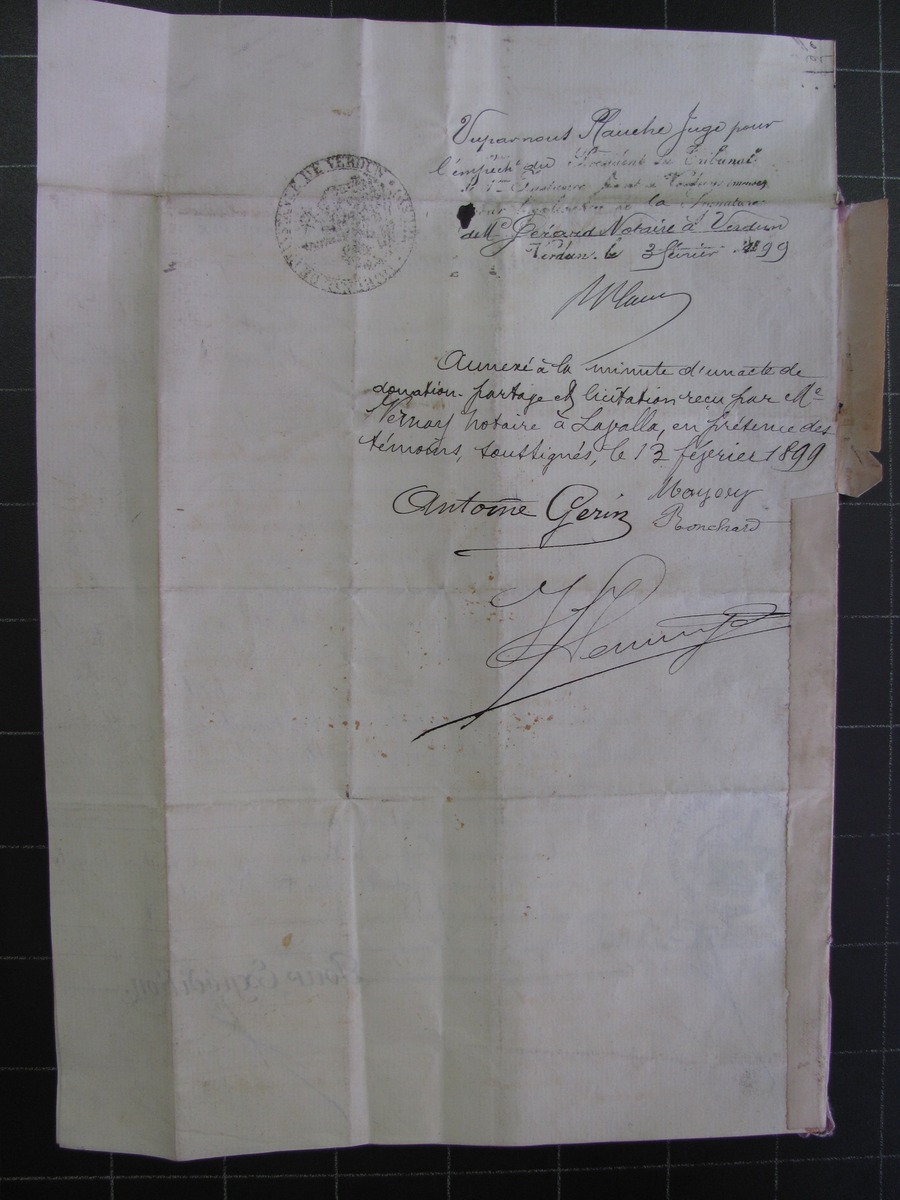 Vu par nous Plauche Juge pour
l'empêcht du Président du Tribunal
de 1re Instance séant à Verdun
pour légalisation de la Signature
de Me Gérard Notaire à Verdun
Verdun le 3 février 1899
TRIBUNAL DE 1ERE INSTANCE DE VERDUN
Annexé à la minute d'un acte de
donation partage & licitation reçu par Me
Vernay notaire à Lavalla, en présence des
témoins, soussignés, le 13 février 1899
Antoine Gerin
Mayery
Ronchard
Pour Expédition